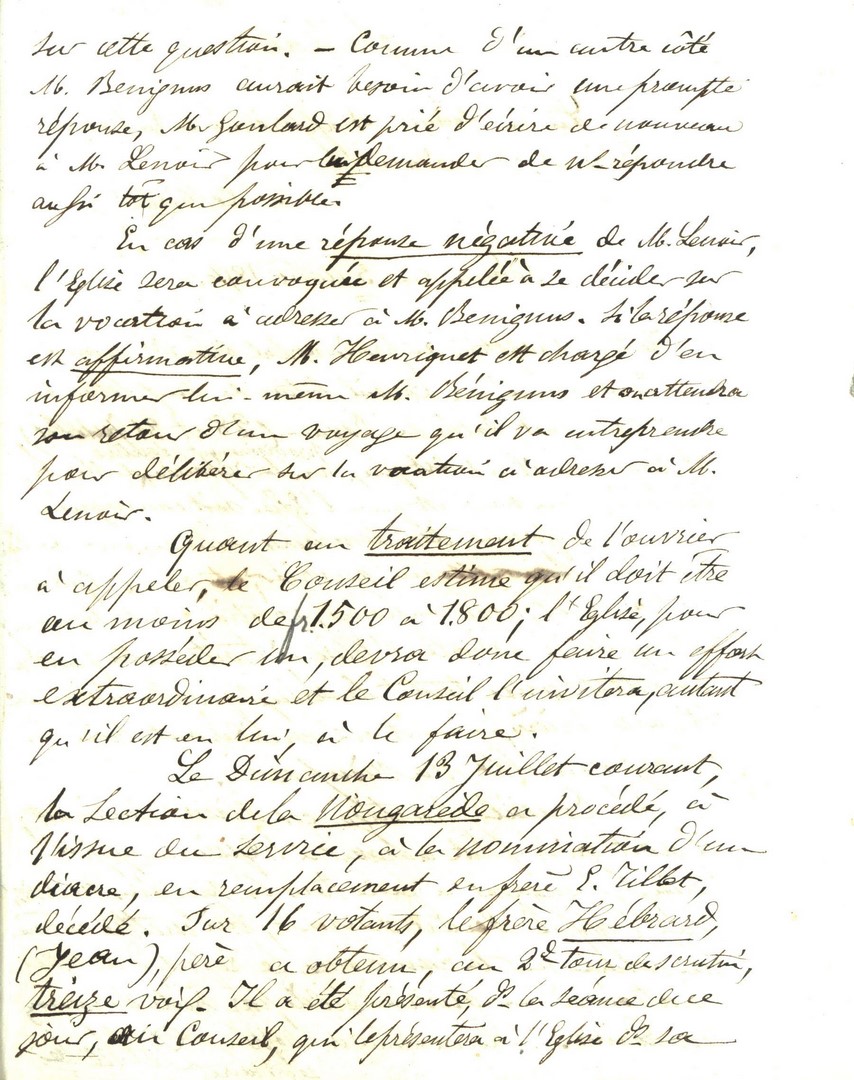 sur cette question. – Comme d'un autre côté
M. Benignus aurait besoin d'avoir une prompte
réponse, Mr Goulard est prié d'écrire de nouveau
à M. Lenoir pour lui demander de ns répondre
aussi tôt que possible.
En cas d'une réponse négative de M. Lenoir,
l'Eglise sera convoquée et appelée à se décider sur
la vocation à adresser à M. Benignus. Si la réponse
est affirmative, M. Henriquet est chargé d'en
informer lui-même M. Bénignus et on attendra
son retour d'un voyage qu'il va entreprendre
pour délibérer sur la vocation à adresser à M.
Lenoir.
Quant au traitement de l'ouvrier
à appeler, le Conseil estime qu'il doit être
au moins de fr. 1.500 à 1.800; l'Eglise, pour
en posséder un, devra donc faire un effort
extraordinaire et le Conseil l'invitera, autant
qu'il est en lui, à le faire.
Le Dimanche 13 Juillet courant,
la Section de la Nougarède a procédé, à
l'issue du service, à la nomination d'un
diacre, en remplacement du frère E. Tillet,
décédé. Sur 16 votants, le frère Hébrard,
(Jean), père a obtenu, au 2d tour de scrutin,
treize voix. Il a été présenté, ds la séance de ce
jour, au Conseil, qui le présentera à l'Eglise ds sa